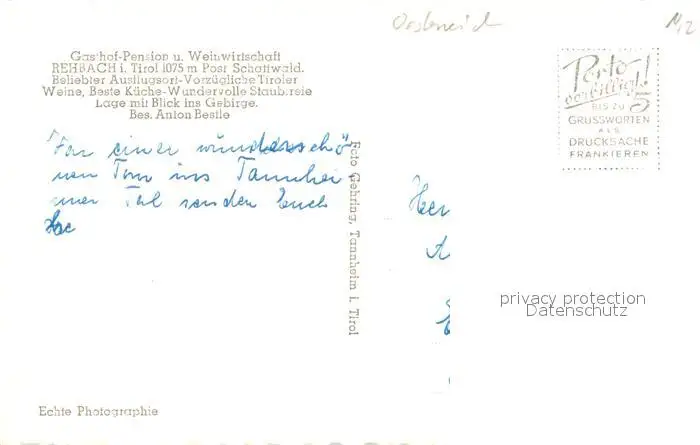 Oesterreich
Gasthof-Pension u. Weinwirtschaft
REHBACH i. Tirol 1075 m Post Schattwald.
Beliebter Ausflugsort-Vorzügliche Tiroler
Weine, Beste Küche-Wundervolle Staubfreie
Lage mit Blick ins Gebirge.
Bes. Anton Bestle
Porto
verbilligt!
BIS ZU 5
GRUSSWORTEN
ALS
DRUCKSACHE
FRANKIEREN
Von einer wunderschö-
nen Tour ins Tannhei-
mer Tal senden Euch
Foto Gehring, Tannheim i. Tirol
Her
privacy protection
Datenschutz
Echte Photographie